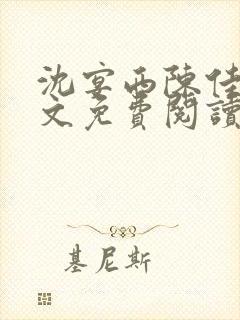 沈宴西陳佳
文免費閱讀
基尼斯